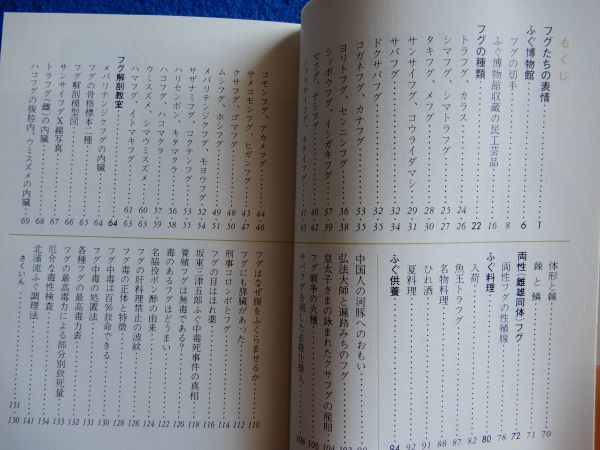 もくじ
フグたちの表情 1
ふぐ博物館 6
フグの切手 8
ふぐ博物館収蔵の民工芸品 16
フグの種類 22
トラフグ、カラス 24 26
シマフグ、シマトラフグ 27 28
タキフグ、メフグ
サンサイフグ、コウライダマシ
サバフグ 32
ドクサバフグ
コガネフグ、カナフグ
ヨリトフグ、センニンフグ
シッポウフグ、イシガキフグ
マフグ、ナシフグ
ショウサイフグ、
コモンフグ、アカメフグ 44 46
サメコモンフグ、ヒガンフグ 45 47
クサフグ、ゴマフグ 48 50
ムシフグ、ホシフグ 49 51
メバリテンジクフグ、モヨウフグ 52 54
サザナミフグ、コクテンフグ 53 55
ハリセンボン、キタマクラ 56 58
イトフグ、ハコフグ
ウミスズメ、シマウミスズメ
ハマフグ、イトマキフグ 61 63
フグ解剖教室 64
メバリテンジクフグの内臓 64
フグの骨格標本二種
フグ解剖模型図
サンサイフグX線写真 67
トラフグ(雌)の内臓 68
ハコフグの腹腔内、ウミスズメの内臓 69
体形と棘 70
棘と鱗 71
両性(雌雄同体)フグ 72
両性フグの性殖腺
ふぐ料理 80
入荷 82
魚王トラフグ 87
名物料理 88
ひれ酒 91
夏料理 92
ふぐ供養 94
中国人の河豚へのおもい
弘法大師と遍路みちのフグ
皇太子さまの詠まれたクサフグの産卵
フグ戦争の火種 106
サバフグを消した必殺仕掛人 108
フグはなぜ腹をふくらませるか 110
フグにも膵臓があった 112
刑事コロンボとフグ 114
フグの目はほれ薬 116
坂東三津五郎ふぐ中毒死事件の真相 118
養殖フグは無毒である? 120
毒のあるフグほどうまい 121
名脇役ポン酢の由来 124
フグの肝料理禁止の波紋 126
フグ毒の正体と特徴 128
フグ中毒は百%救命できる 130
フグ中毒の処置法 131
各種フグの最高毒力表 132
フグの最高毒力による部分別致死量 133
厄介な毒性検査 134
北濱流ふぐ調理法 141
さくいん 150 151